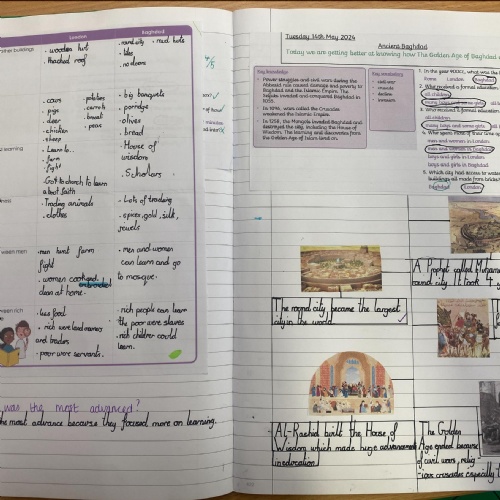 London
Baghdad
other buildings
. wooden hut
. thached roof
. round city . mud huts
. tiles
. no doors
4/5
. cows
. pigs
. deer
. chicken
. sheep
potatoes
carrots
bread
peas
. big banquets
. porridge
. olives
. bread
. Learn to..
. farm
. fight
. Got to church to learn
a bout faith
. House of
wisdom
. Scholars
. Trading animals
. clothes
. Lots of trading
. spices, gold, silk,
jewels
between men
men hunt farm
fight
. women cook and
clean at home.
. men and women
can learn and go
to mosque.
between rich
. less food
. rich were land owners
and traders
. poor were servants.
. rich people can learn
the poor were slaves
. rich children could
learn.
was the most advanced?
the most advance because they focused more on learning.
Tuesday 14th May 2024
Ancient Baghdad
Today we are getting better at knowing how The Golden Age of Baghdad
Key knowledge
Power struggles and civil wars during the
Abbasid rule caused damage and poverty to
Baghdad and the Islamic Empire. The
Seljuks invaded and conquered Baghdad in
1055.
In 1096, wars called the Crusades
weakened the Islamic Empire.
In 1258, the Mongols invaded Baghdad and
destroyed the city, including the House of
Wisdom. The learning and discoveries from
the Golden Age of Islam lived on.
Key vocabulary
civil war
crusade
decline
invasion
1. In the year 900CE, what was the
Rome London Baghdad
2. Who received a formal education
all children
many boys and some girls
3. Who received a formal education
all children
many boys and some girls
4. Who spent most of their time
men and women in London
men and women in Baghdad
boys and girls in London
boys and girls in Baghdad
5. Which city had access to water
buildings all made from bricks
Baghdad London
The round city became the largest
city in the world.
A Prophet called Muhammad
round city. It took 4 y
Al-Rashid built the House of
Wisdom which made huge advancement
in education
The Golden
Age ended because
of civil wars, relig
ious crusades especially t